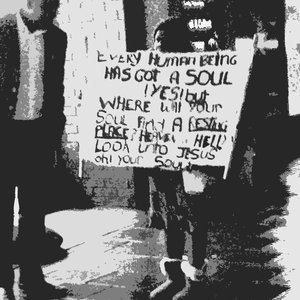 EVERY HUMAN BEING
HAS GOT A SOUL
(YES) but
WHERE will YOUR
SOUL FIND A RESTING
PLACE? HEAVEN HELL)
LOOK UNTO JESUS
oh! YOUR SOUL